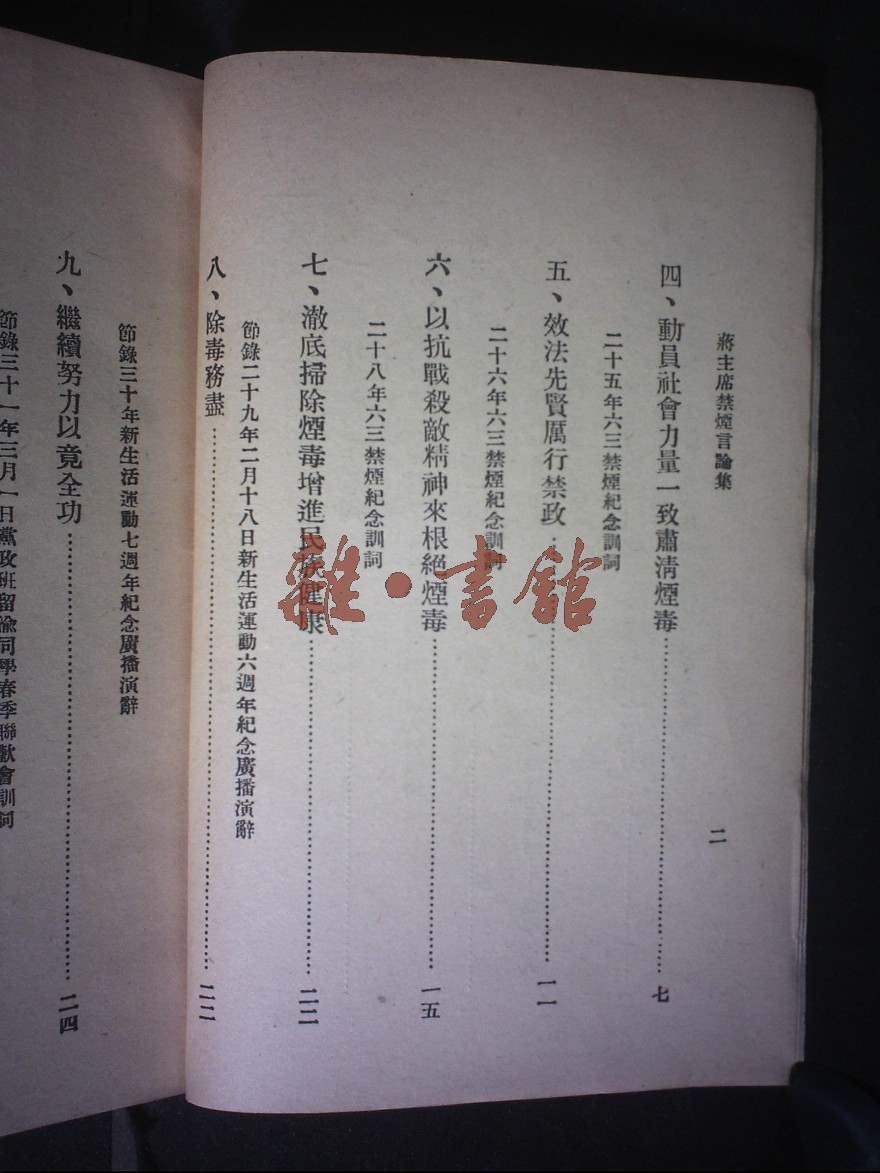 蔣主席禁煙言論集
二
四、動員社會力量一致肅清煙毒……七
二十五年六三禁煙紀念訓詞
五、效法先賢厲行禁政……一一
二十六年六三禁煙紀念訓詞
六、以抗戰殺敵精神來根絕煙毒……一五
二十八年六三禁煙紀念訓詞
七、澈底掃除煙毒增進民族健康……二二
節錄二十九年二月十八日新生活運動六週年紀念廣播演辭
八、除毒務盡……二二
節錄三十年新生活運動七週年紀念廣播演辭
九、繼續努力以竟全功……二四
節錄三十一年三月一日黨政班留渝同學春季聯歡會訓詞
雜·書館